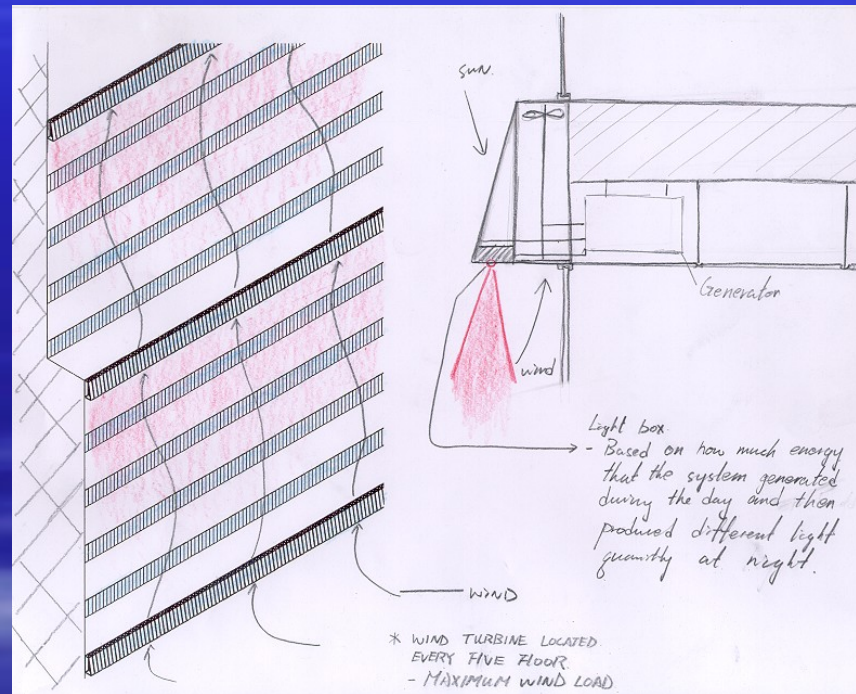 SUN.
Generator
wind
Light box.
- Based on how much energy
that the system generated
during the day and then
produced different light
quantity at night.
WIND
* WIND TURBINE LOCATED
EVERY FIVE FLOOR
- MAXIMUM WIND LOAD